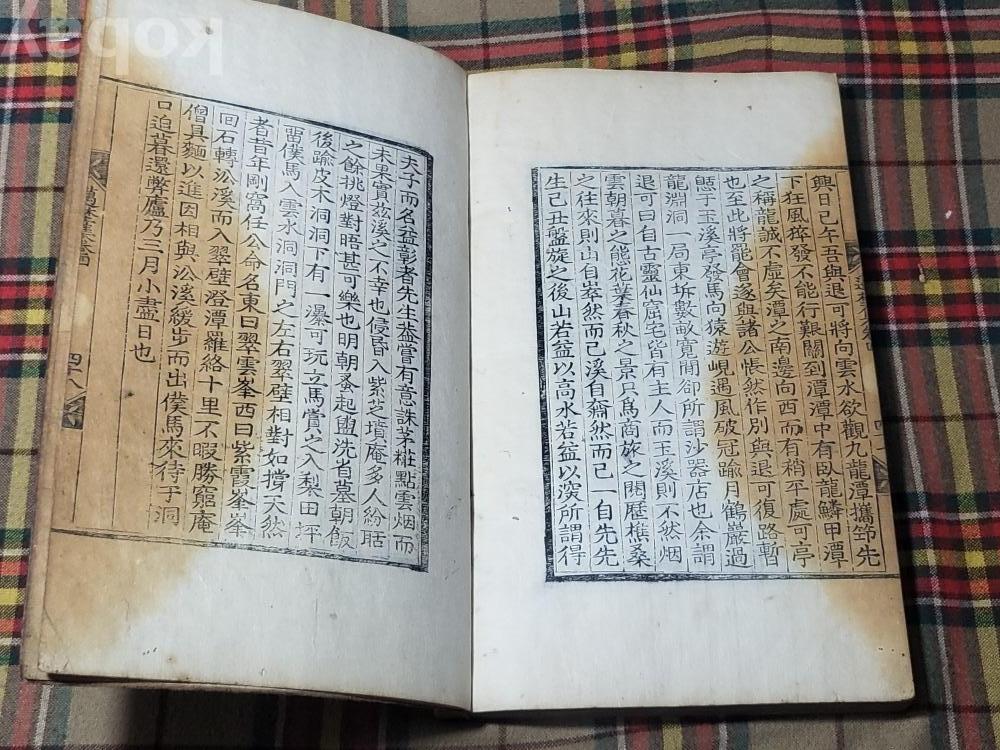 興日已午吾與退可將向雲水欲觀九龍潭攜笻先
下狂風猝發不能行艱關到潭潭中有臥龍鱗甲潭
之稱龍誠不虛矣潭之南邊向西而有稍平處可亭
也至此將罷會遂與諸公悵然作別與退可復路暫
憩于玉溪亭發馬向猿遊峴遇風破冠踰月鶴巖過
龍淵洞一局東坼數畝寬閒卻所謂沙器店也余謂
退可曰自古靈仙窟宅皆有主人而玉溪則不然烟
雲朝暮之態花葉春秋之景只爲商旅之閱歷樵桑
之往來則山自崒然而已溪自㶁然而已一自先先
生己丑盤旋之後山若益以高水若益以深所謂得
夫子而名益彰者先生益嘗有意誅茅粧點雲烟而
未果實玆溪之不幸也侵昏入紫芝墳庵多人紛聒
之餘挑燈對晤甚可樂也明朝蚤起盥洗省墓朝飯
後踰皮木洞洞下有一瀑可玩立馬賞之入梨田坪
留僕馬入雲水洞洞門之左右翠壁相對如撑天然
者昔年剛窩任公命名東曰翠雲峯西曰紫霞峯峯
回石轉沿溪而入翠壁澄潭羅絡十里不暇勝窮庵
僧具麵以進因相與沿溪緩步而出僕馬來待于洞
口迫暮還弊廬乃三月小盡日也
四十八
kobay